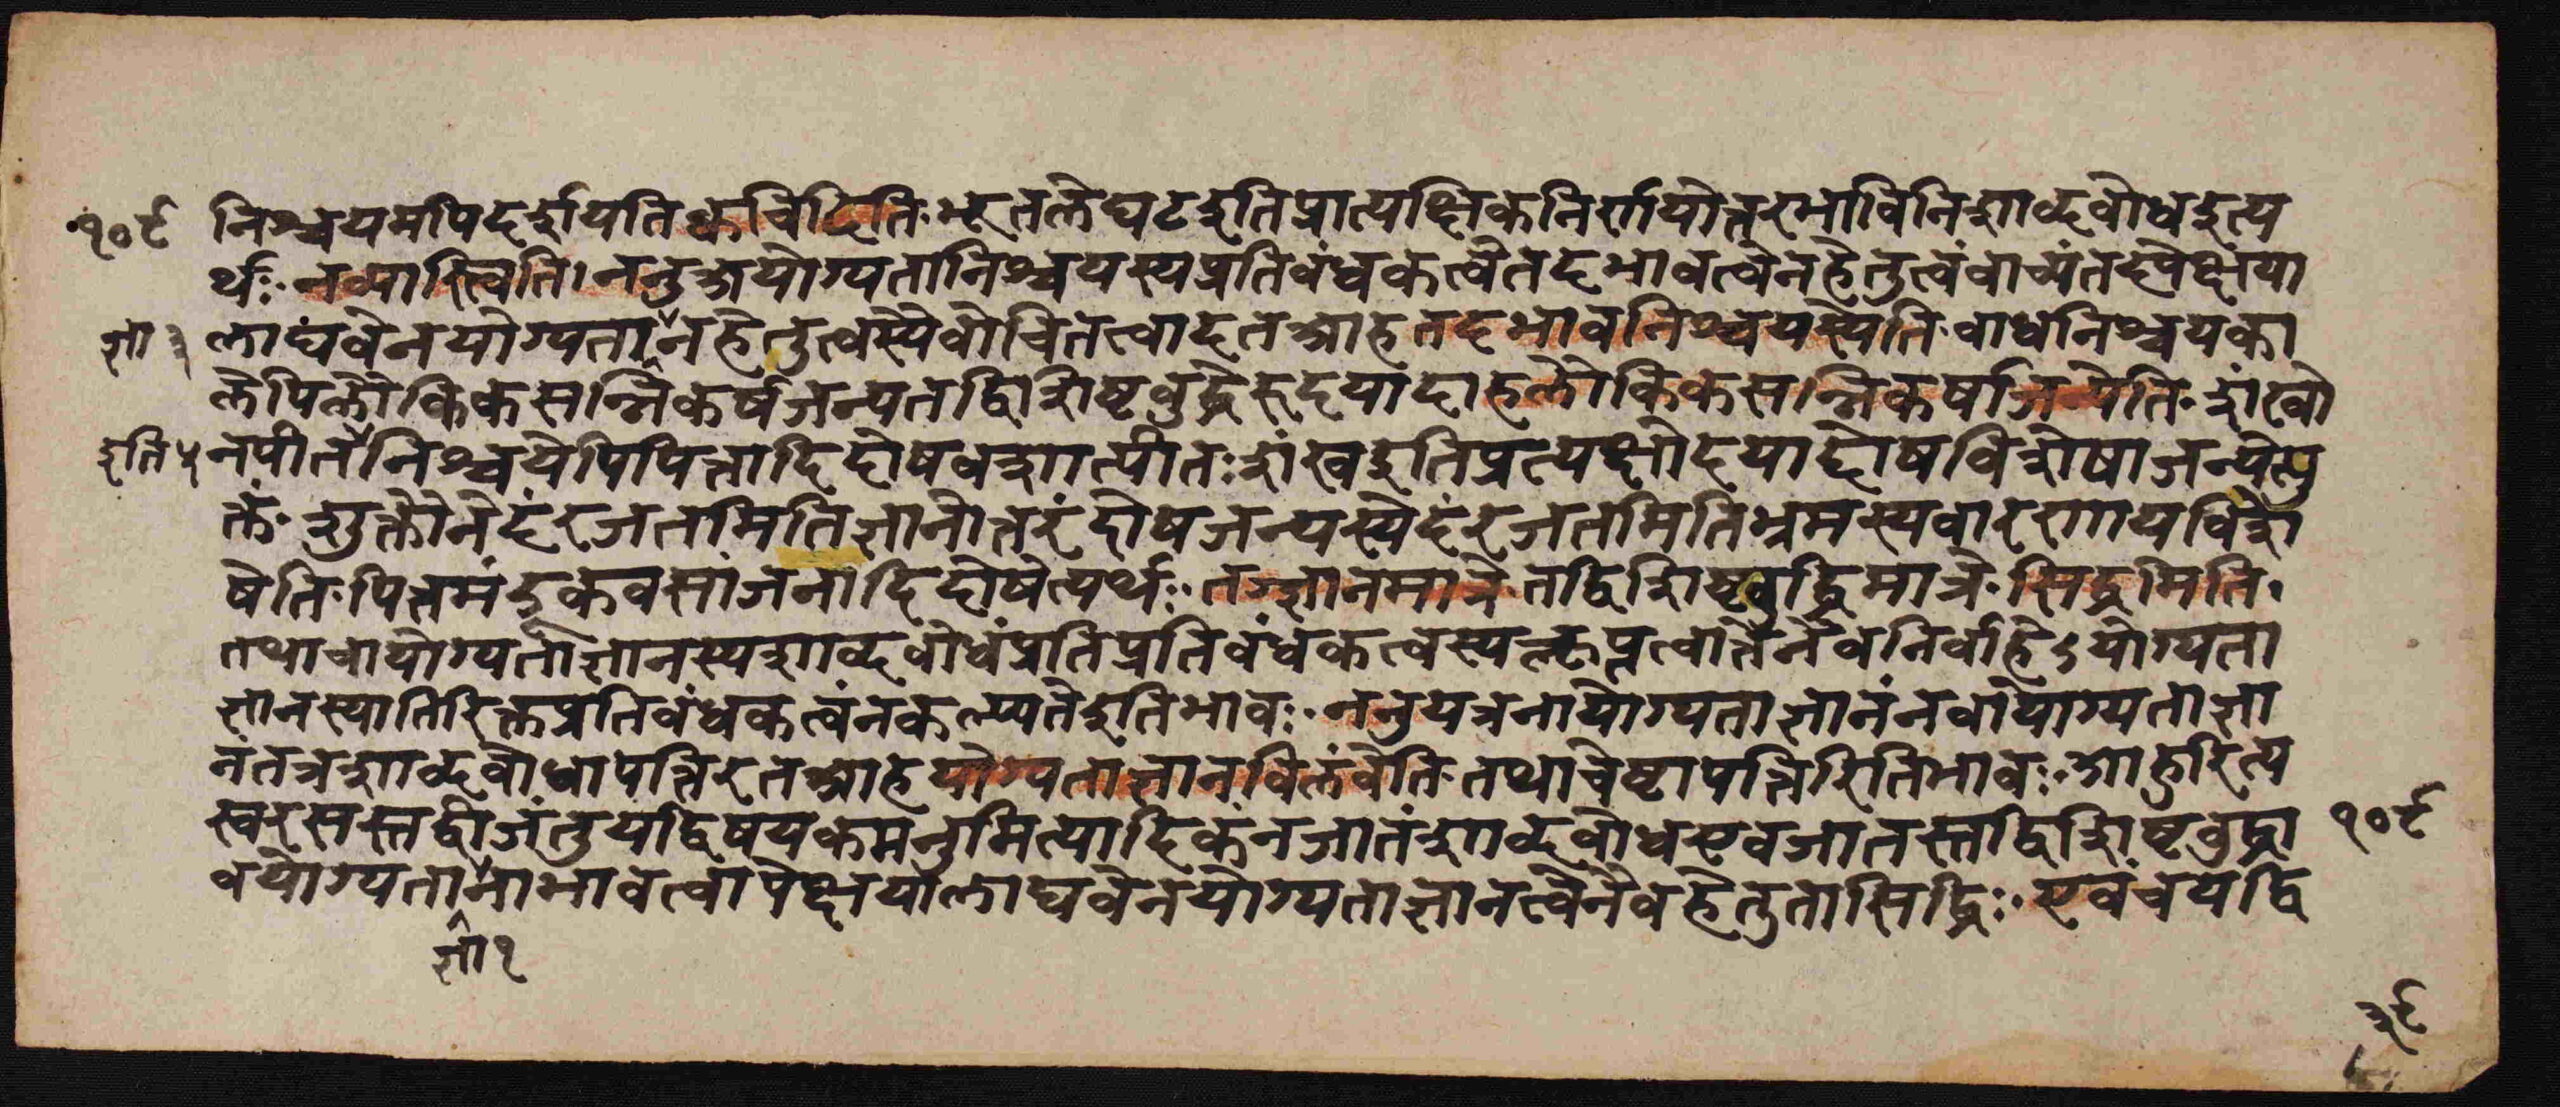 १०९ निश्चयमपिदर्शयतिक्वचिदिति·भूतलेघटइतिप्रात्यक्षिकनिर्णयोत्तरभाविनिशाब्दबोधइत्य
र्थः·नव्यास्त्विति।ननुक्तयोग्यतानिश्चयस्यप्रतिबंधकत्वेतदभावत्वेनहेतुत्वंवाच्यंतदपेक्षया
लाघवेनयोग्यतानहेतुत्वस्यैवोचितत्वादतआहतदभावनिश्चयस्येति·बाधनिश्चयका
ज्ञा ३
लेपिलौकिकसन्निकर्षजन्यतद्विशिष्टबुद्धेरुदयादाहलौकिकसन्निकर्षाजन्येति·शंखो
नपीतनिश्चयेपिपित्तादिदोषवशात्पीतःशंखइतिप्रत्यक्षोदयाद्दोषविशेषाजन्येत्यु
इति ५
क्तं·शुक्तौनेदंरजतमितिज्ञानोत्तरंदोषजन्यस्येदंरजतमितिभ्रमस्यवारणायविशे
षेति·पित्तमंडूकवसांजनादिदोषेत्यर्थः·तज्ज्ञानमात्रेतद्विशिष्टबुद्धिमात्रे·सिद्धमिति।
तथाचायोग्यताज्ञानस्यशाब्दबोधंप्रतिप्रतिबंधकत्वस्यकॢप्तत्वात्तेनैवनिर्वाहेऽयोग्यता
ज्ञानस्यातिरिक्तप्रतिबंधकत्वंनकल्प्यतेइतिभावः·ननुयत्रनायोग्यताज्ञानंनवायोग्यताज्ञा
नंतत्रशाब्दबोधापत्तिरतआहयोग्यताज्ञानविलंबेति·तथाचेष्टापत्तिरितिभावः·आहुरित्य
स्वरसस्तद्बीजंतुयद्विषयकमनुमित्यादिकंनजातंशाब्दबोधएवजातस्तद्विशिष्टबुद्धा १०९
वयोग्यतानाभावत्वापेक्षयालाघवेनयोग्यताज्ञानत्वेनैवहेतुतासिद्धिः·एवंचयद्वि
ज्ञा १